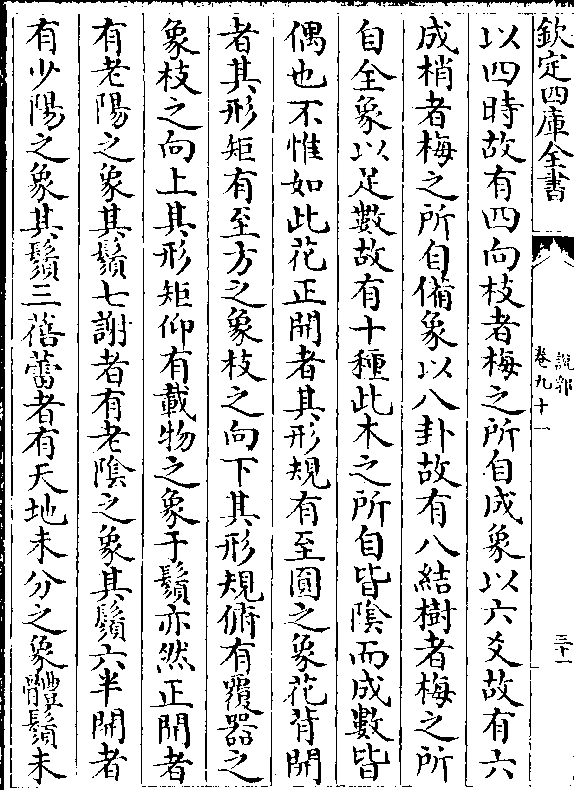 欽定四庫全書
說郛
卷九十一
三十一
以四時故有四向枝者梅之所自成象以六爻故有六
成梢者梅之所自備象以八卦故有八結樹者梅之所
自全象以足數故有十種此木之所自皆陰而成數皆
偶也不惟如此花正開者其形規有至圓之象花背開
者其形矩有至方之象枝之向下其形規俯有覆器之
象枝之向上其形矩仰有載物之象于鬚亦然正開者
有老陽之象其鬚七謝者有老陰之象其鬚六半開者
有少陽之象其鬚三蓓蕾者有天地未分之象體鬚未